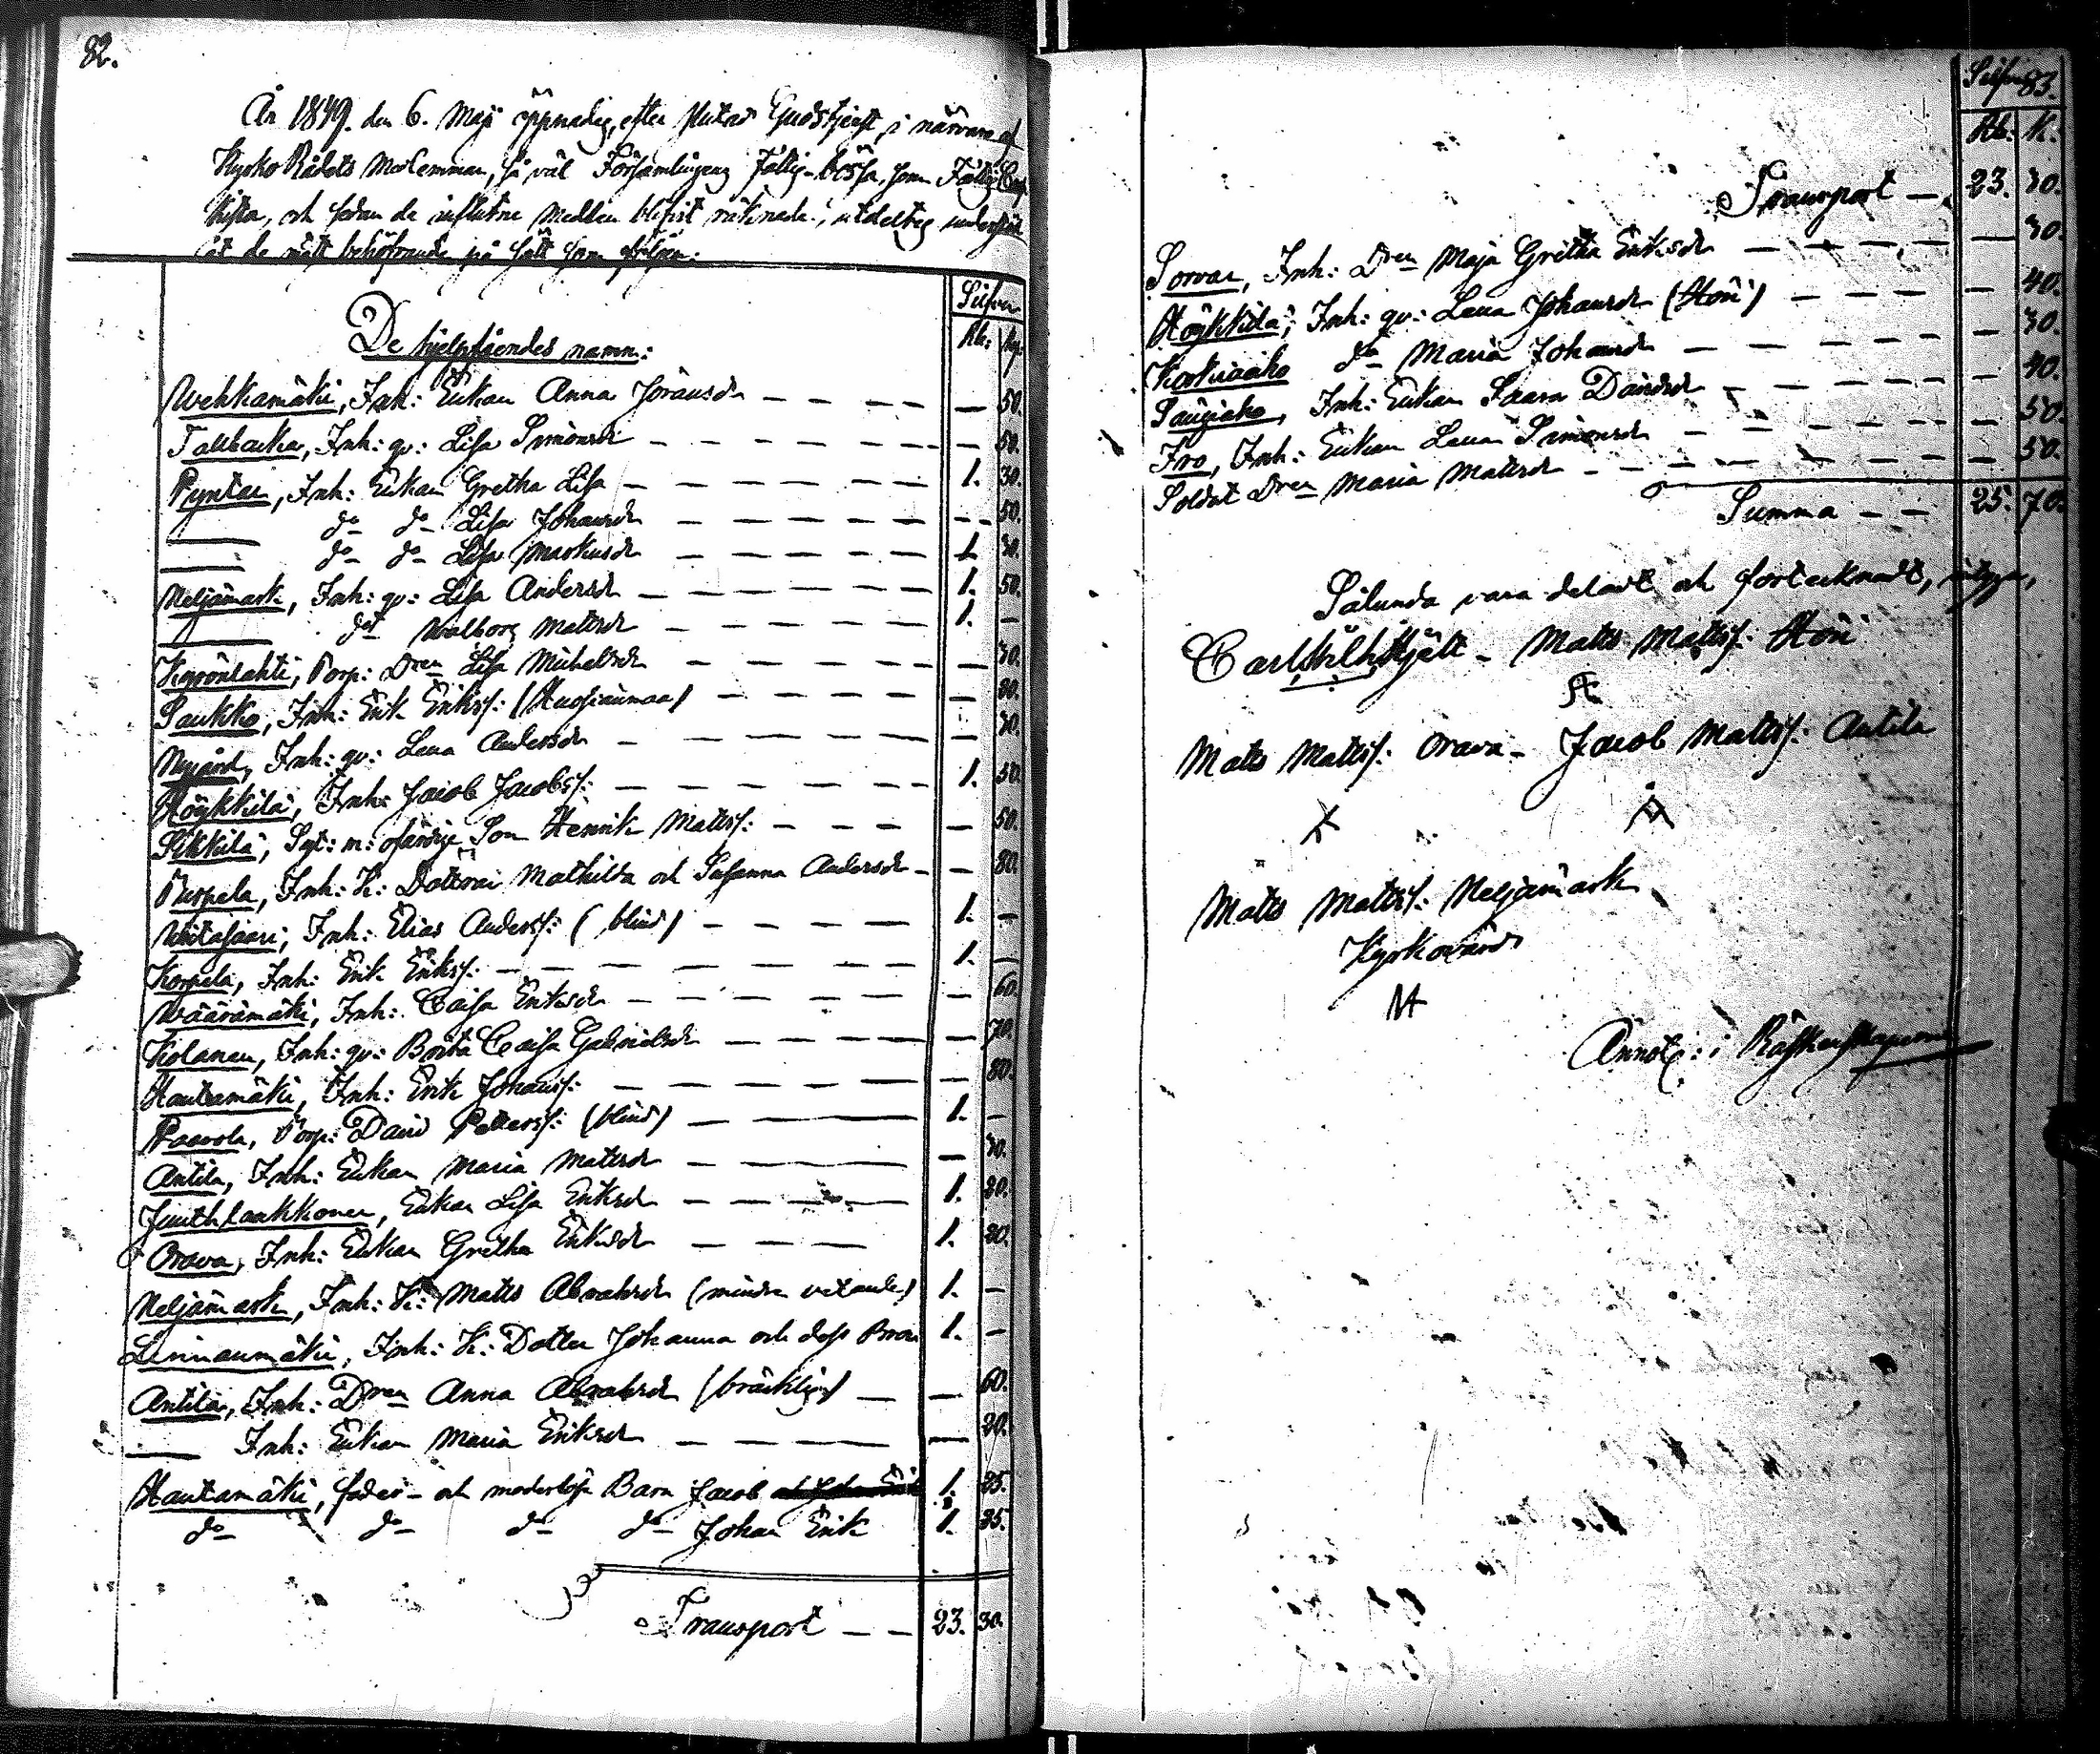 82.
År 1849. den 6. Maji öppnades, efter slutad Gudstjenst, i närvaro af
Kyrko Rådets Medlemmar, så väl Församlingens Fattig-bössa, som Fattig Cass
Kista, och sedan de influtne medlen blifvit räknade, utdeltes
åt de mäst behöfvande på sätt som följer:
De hjelpsåendes namn:
Silfver
Rb: Kop:
Wehkamäki, Inh: Enkan Anna Joransdr — — — — — 50.
Tallbacka, Inh: qv: Lisa Simonsdr — — — — — 50.
Pyntär, Inh: Enkan Gretha Lisa — — — — 1. 30.
do do Lisa Johansdr — — — — — 50.
do do Lisa Markusdr — — — — 1. 30.
Neljämark, Inh: qv: Lisa Andersdr — — — — 1. 50.
do Walborg Mattsdr — — — — 1. —
Kyrönlahti, Torp: Dren Lisa Michelsdr — — — — — 30.
Saukko, Inh: Erik Erikss: (Huosianmaa) — — — — — 80.
Nygård, Inh: qv: Lena Andersdr — — — — — 30.
Höykkilä, Inh: Jacob Jacobss: — — — — 1. 50.
Sikkilä, Sgt: m: ofärdige Son Henrik Mattss: — — — — 50.
Purpela, Inh: K: Döttrar Mathilda och Susanna Andersdr — — 80.
Witasaari, Inh: Elias Anderss: (blind) — — — — 1. —
Korpela, Inh: Erik Erikss: — — — — 1. —
Wäärämäki, Inh: Caisa Eriksdr — — — — — 60.
Kolanen, Inh: qv: Brita Caisa Gabrielsdr — — — — — 70.
Hautamäki, Inh: Erik Johanss: — — — — — 80.
Paavola, Torp: David Petterss: (blind) — — — 1. —
Antila, Inh: Enkan Maria Mattsdr — — — — 30.
Juuthlaakkonen, Enkan Lisa Eriksdr — — — — 1. 20.
Orava, Inh: Enkan Gretha Eriksdr — — — 1. 20.
Neljämark, Inh: K: Matts Abrahsdr (mindre vetande) 1. —
Linnanmäki, Inh: K: Dotter Johanna och dess Bror 1. —
Antila, Inh: Dren Anna Abrahsdr (bräcklig) — — 60.
— Inh: Enkan Maria Eriksdr — — — — 20.
Hautamäki, fader- och moderlösa Barn Jacob 1. 25.
do do do do Johan Erik 1. 25.
Transport — — 23. 30.
83.
Silfver
Rb. K.
Transport — 23. 30.
Sorvar, Inh: Dren Maja Gretha Eriksdr — — — — — 30.
Höykkilä, Inh: qv: Lena Johansdr (Höri) — — — — — 40.
Koskiaako do Maria Johansdr — — — — — 30.
Saugiaho, Inh: Enkan Saara Davidsdr — — — — — 40.
Fro, Inh: Enkan Lena Simonsdr — — — — — 50.
Soldat Dren Maria Mattsdr — — — — — 50.
Summa — — 25. 70.
Sålunda vara deladt och förtecknadt, intyga,
Carl Wilh Hjelt – Matts Mattss: Höri
Matts Mattss: Orava – Jacob Mattss: Antila
Matts Mattss: Neljämark
Kyrkovärd
Annot: i Räkenskaperne